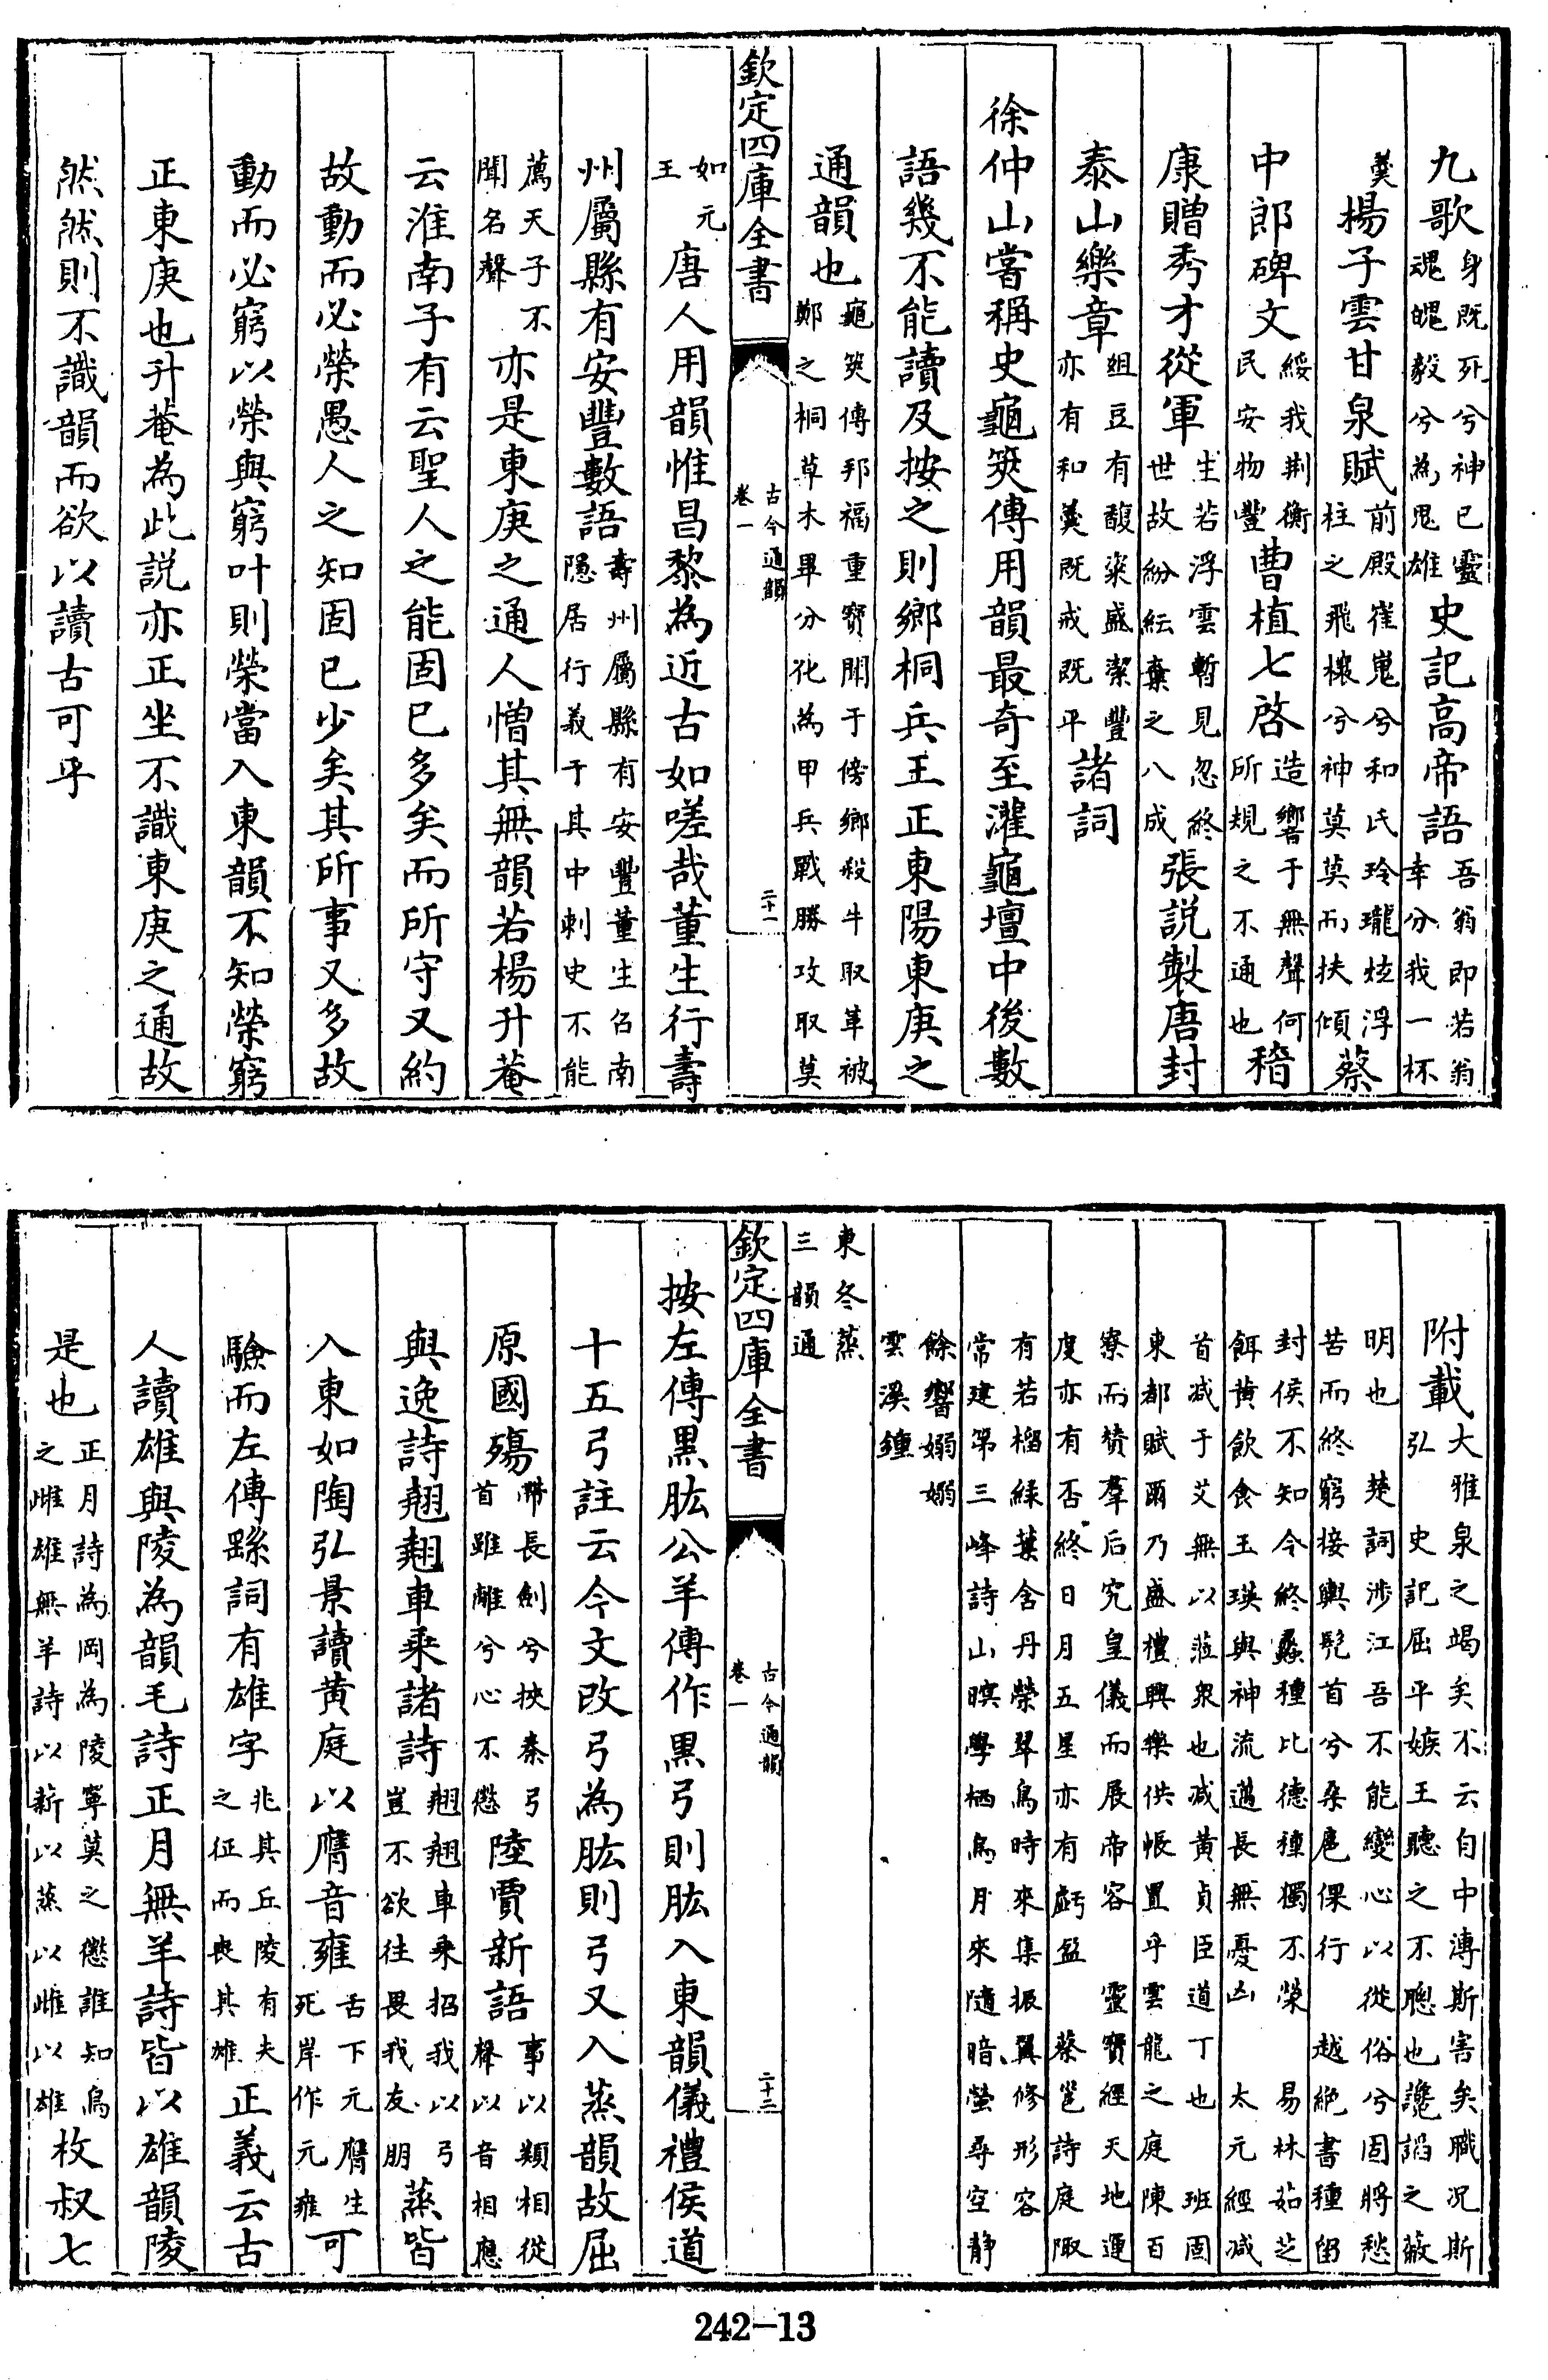 九歌身既死兮神已靈魂魄毅兮為鬼雄史記高帝語吾翁即若翁幸分我一杯
羮揚子雲甘泉賦前殿崔嵬兮和氏玲瓏炫浮柱之飛榱兮神莫莫而扶傾蔡
中郎碑文綏我荆衡民安物豐曹植七啓造響于無聲何所規之不通也稽
康贈秀才從軍生若浮雲暫見忽終世故紛紜棄之八成張説製唐封
泰山樂章爼豆有馥粢盛潔豐亦有和羮既戒既平諸詞
徐仲山嘗稱史龜筴傳用韻最奇至灌龜壇中後數
語幾不能讀及按之則鄉桐兵王正東陽東庚之
通韻也龜筴傳邦福重寳聞于傍鄉殺牛取革被鄭之桐草木畢分化為甲兵戰勝攻取莫
欽定四庫全書 古今通韻 卷一 二十一
如元王唐人用韻惟昌黎為近古如嗟哉董生行壽
州屬縣有安豐數語壽州屬縣有安豐董生召南隠居行義于其中刺史不能
薦天子不聞名聲亦是東庚之通人憎其無韻若楊升菴
云淮南子有云聖人之能固已多矣而所守又約
故動而必榮愚人之知固已少矣其所事又多故
動而必窮以榮與窮叶則榮當入東韻不知榮窮
正東庚也升菴為此説亦正坐不識東庚之通故
然然則不識韻而欲以讀古可乎
附載大雅泉之竭矣不云自中溥斯害矣職况斯弘 史記屈平嫉王聽之不聰也讒諂之蔽
明也 楚詞涉江吾不能變心以從俗兮固將愁苦而終窮接輿髡首兮桑扈倮行 越絶書種留
封侯不知令終蠡種比德種獨不榮 易林茹芝餌黄飲食玉瑛與神流通長無憂凶 太元經減
首減于艾無以涖衆也減黄貞臣道丁也 班固東都賦爾乃盛禮興樂供帳置乎雲龍之庭陳百
寮而賛羣后究皇儀而展帝容 靈寳經天地運度亦有否終日月五星亦有虧盈 蔡邕詩庭陬
有若榴緑葉含丹榮翠鳥時來集振翼修形容 常建第三峰詩山暝學栖鳥月來隨暗螢尋空静
餘響嫋嫋雲溪鐘
東冬蒸三韻通
欽定四庫全書 古今通韻 卷一 二十二
按左傳黒肱公羊傳作黒弓則肱入東韻儀禮侯道
十五弓註云今文改弓為肱則弓又入蒸韻故屈
原國殤帶長劍兮挾秦弓首雖離兮心不懲陸賈新語事以類相從聲以音相應
與逸詩翹翹車乘諸詩翹翹車乘招我以弓豈不欲往畏我友朋蒸皆
入東如陶弘景讀黄庭以膺音雍舌下元膺生死岸作元雍可
驗而左傳繇詞有雄字兆其丘陵有夫之征而喪其雄正義云古
人讀雄與陵為韻毛詩正月無羊詩皆以雄韻陵
是也正月詩為岡為陵寧莫之懲誰知烏之雌雄無羊詩以薪以蒸以雌以雄枚叔七
242-13